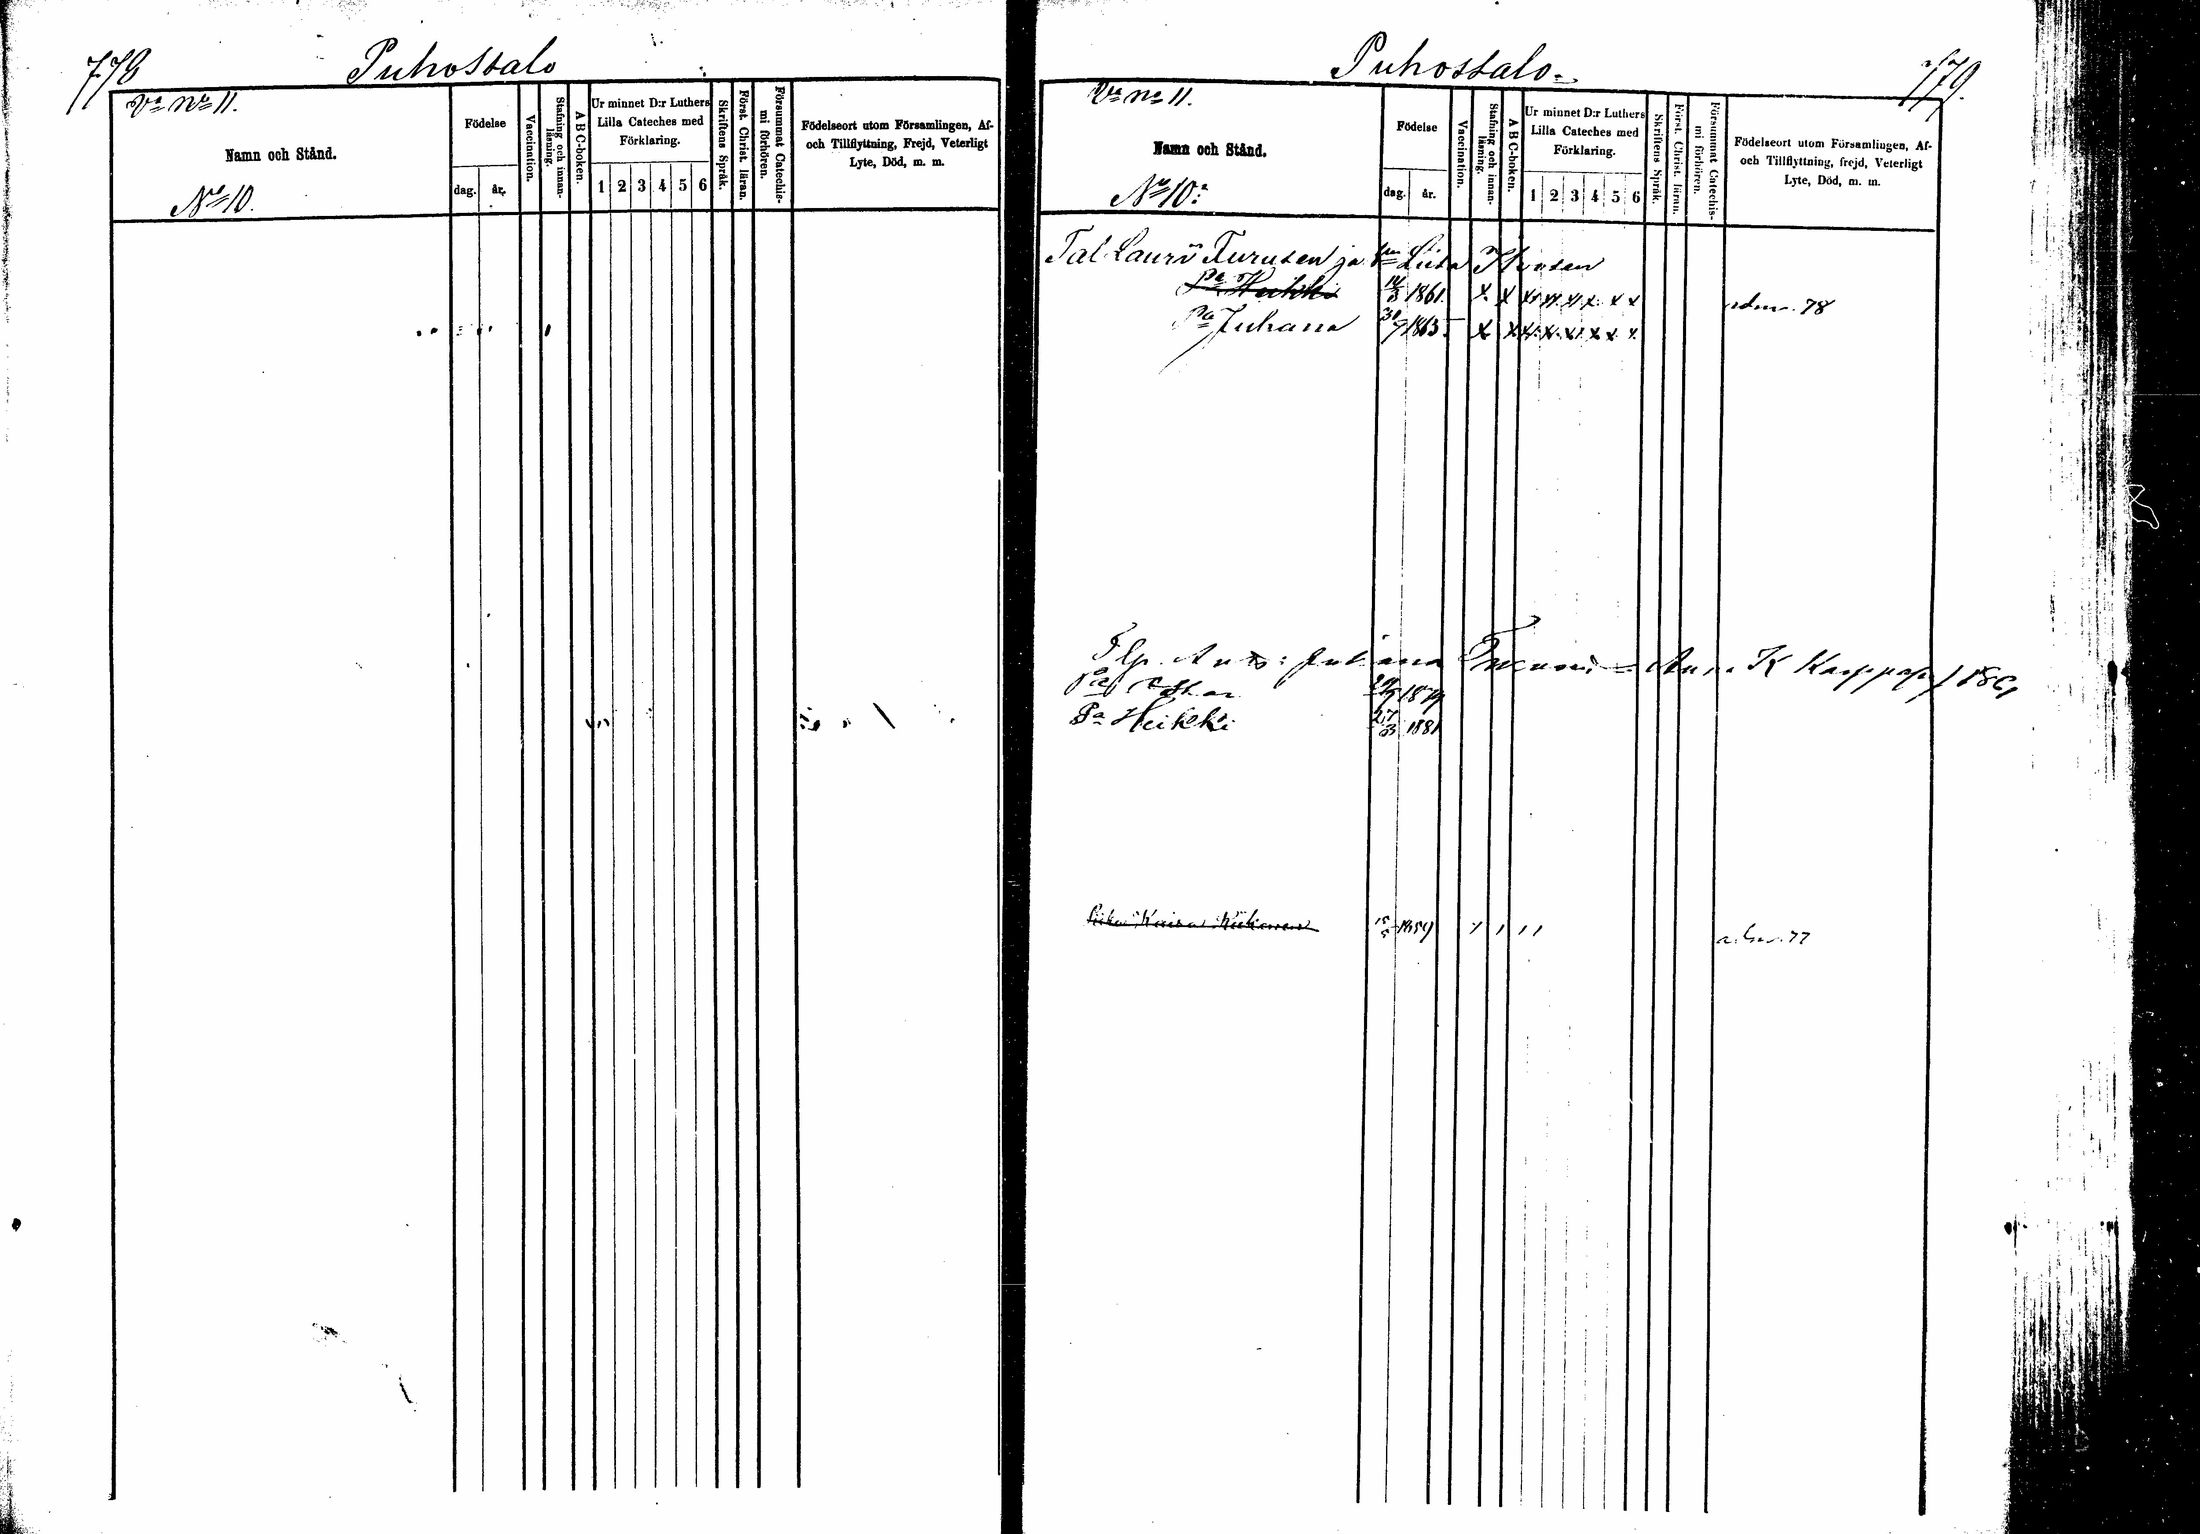 778
Puhostalo
Vo No 11.
Namn och Stånd.
No 10.
Födelse
dag. år.
Vaccination.
Stafning och innan-
läsning.
A B C-boken.
Ur minnet D:r Luthers
Lilla Cateches med
Förklaring.
1 2 3 4 5 6
Skriftens Språk.
Först. Christ. läran.
Försummat Catechis-
mi förhören.
Födelseort utom Församlingen, Af-
och Tillflyttning, Frejd, Veterligt
Lyte, Död, m. m.
Puhostalo.
779.
Vo No 11.
Namn och Stånd.
No 10:
Födelse
dag. år.
Vaccination.
Stafning och innan-
läsning.
A B C-boken.
Ur minnet D:r Luthers
Lilla Cateches med
Förklaring.
1 2 3 4 5 6
Skriftens Språk.
Först. Christ. läran.
Försummat Catechis-
mi förhören.
Födelseort utom Församlingen, Af-
och Tillflyttning, frejd, Veterligt
Lyte, Död, m. m.
Tal Lauri Turunen ja Liisa
Pa Heikki 1861. x x x x x x x x adm. 78
Pa Juhana 30/7 1863 x x x x x x x x
Juhana Anna K
1879
Pa Heikki 27/3 1881
Kaisa 1859 77